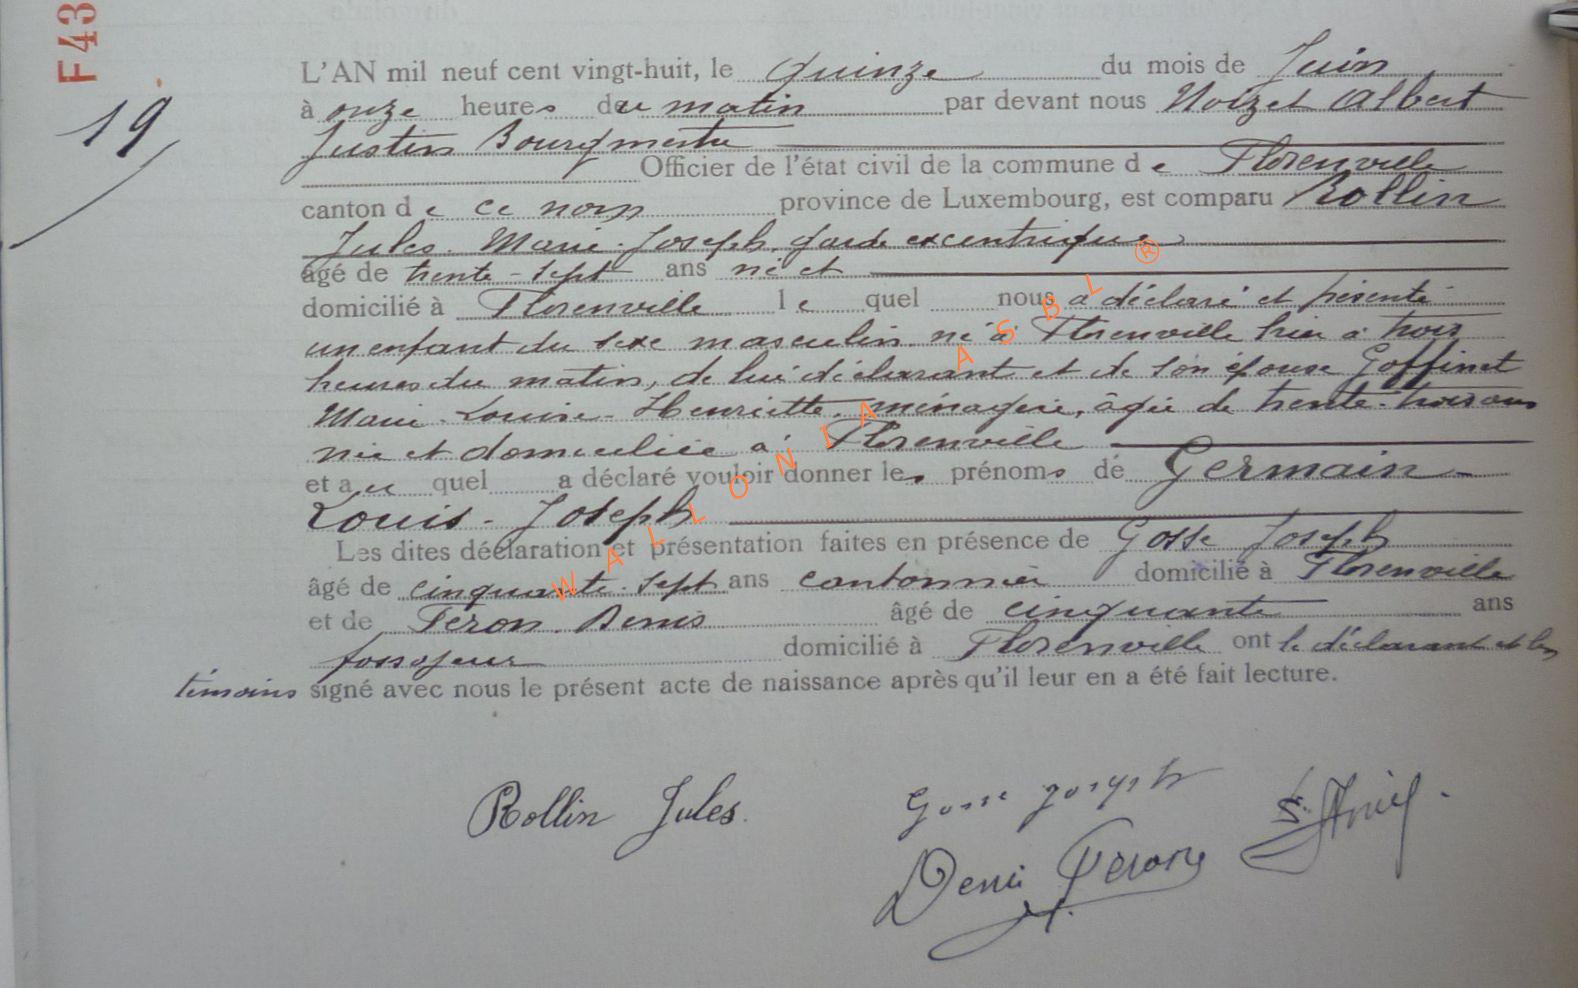 F43
19
L'AN mil neuf cent vingt-huit, le quinze du mois de Juin
à onze heures du matin par devant nous Noizet Albert
Justin Bourgmestre
Officier de l'état civil de la commune de Florenville
canton de ce nom province de Luxembourg, est comparu Rollin
Jules-Marie-Joseph, garde excentrique
âgé de trente-sept ans né et
domicilié à Florenville lequel nous a déclaré et présenté
un enfant du sexe masculin né à Florenville hier à trois
heures du matin, de lui déclarant et de son épouse Goffinet
Marie-Louise-Henriette, ménagère, âgée de trente-trois ans
née et domiciliée à Florenville
et auquel a déclaré vouloir donner les prénoms de Germain-
Louis-Joseph
Les dites déclaration et présentation faites en présence de Gosse Joseph
âgé de cinquante-sept ans cantonnier domicilié à Florenville
et de Feron Denis âgé de cinquante ans
fossoyeur domicilié à Florenville ont le déclarant et les
témoins signé avec nous le présent acte de naissance après qu'il leur en a été fait lecture.
Rollin Jules.
Gosse Joseph
Denis Feron
WALLONIA ASBL ®